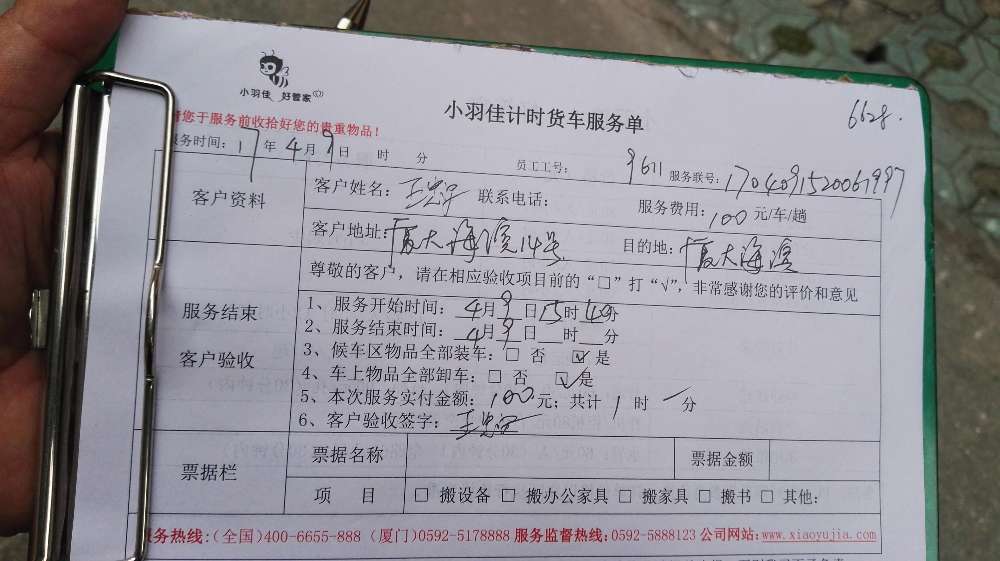 小羽佳 好管家
小羽佳计时货车服务单
6628.
请您于服务前收拾好您的贵重物品！
服务时间：17年4月9日 时 分 员工工号：9611 服务联号：1704091520061997
客户资料
客户姓名： 联系电话： 服务费用：100元/车/趟
客户地址：厦大海滨14号 目的地：厦大海滨
服务结束
客户验收
尊敬的客户，请在相应验收项目前的“□”打“√”，非常感谢您的评价和意见
1、服务开始时间：4月9日15时40分
2、服务结束时间：4月9日__时__分
3、候车区物品全部装车：□ 否 ☑ 是
4、车上物品全部卸车：□ 否 ☑ 是
5、本次服务实付金额：100元；共计1时 分
6、客户验收签字：
票据栏
票据名称 票据金额
项 目 □ 搬设备 □ 搬办公家具 □ 搬家具 □ 搬书 □ 其他：
服务热线:(全国)400-6655-888 (厦门)0592-5178888 服务监督热线:0592-5888123 公司网站:www.xiaoyujia.com